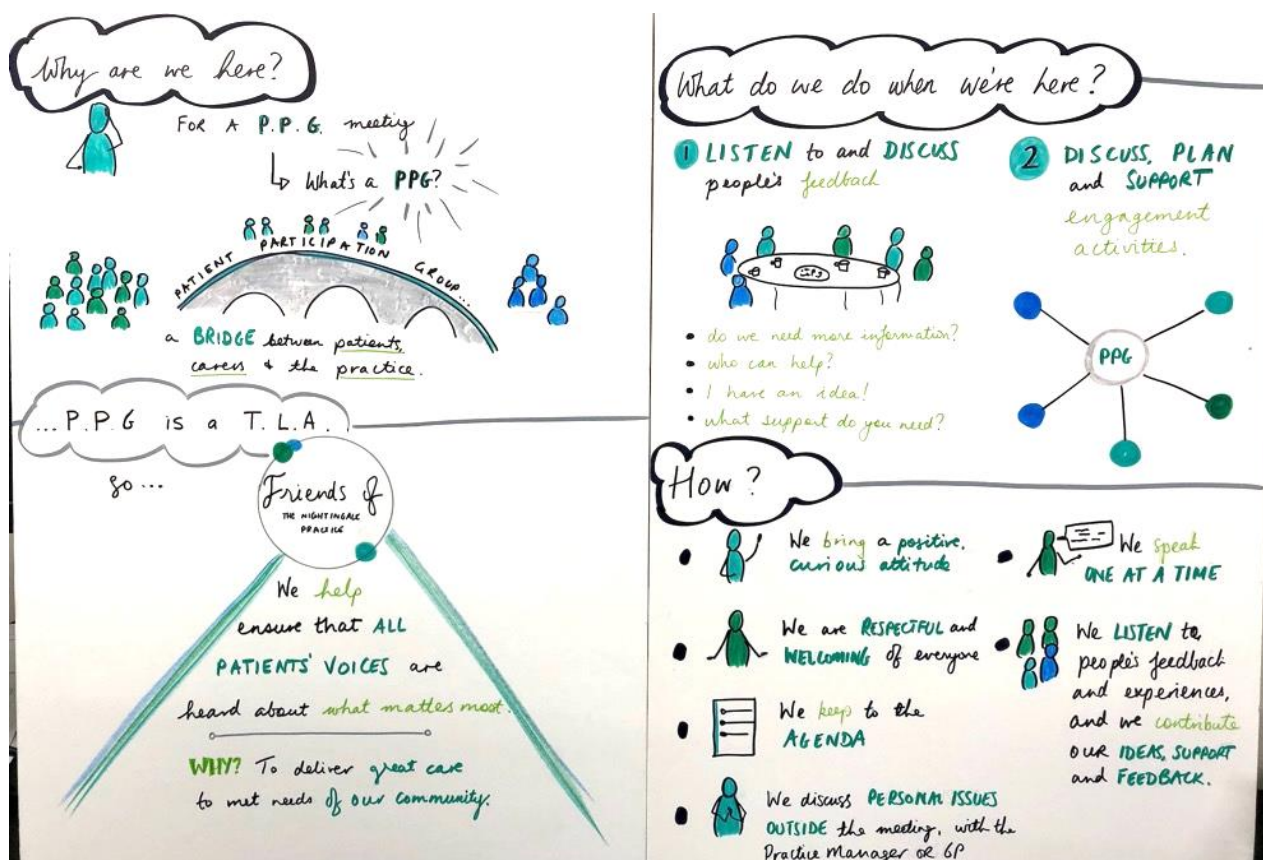 Why are we here?
FOR A P.P.G. meeting
What's a PPG?
PATIENT PARTICIPATION GROUP...
a BRIDGE between patients,
carers & the practice.
...P.P.G is a T.L.A.
so...
Friends of
THE NIGHTINGALE
PRACTICE
We help
ensure that ALL
PATIENTS' VOICES are
heard about what matters most.
WHY? To deliver great care
to met needs of our community.
What do we do when we're here?
1 LISTEN to and DISCUSS
people's feedback
• do we need more information?
• who can help?
• I have an idea!
• what support do you need?
2 DISCUSS, PLAN
and SUPPORT
engagement
activities.
PPG
How?
• We bring a positive,
curious attitude
• We are RESPECTFUL and
WELCOMING of everyone
• We keep to the
AGENDA
• We discuss PERSONAL ISSUES
OUTSIDE the meeting, with the
Practice Manager OR GP
• We speak
ONE AT A TIME
• We LISTEN to
people's feedback
and experiences,
and we contribute
our IDEAS, SUPPORT
and FEEDBACK.